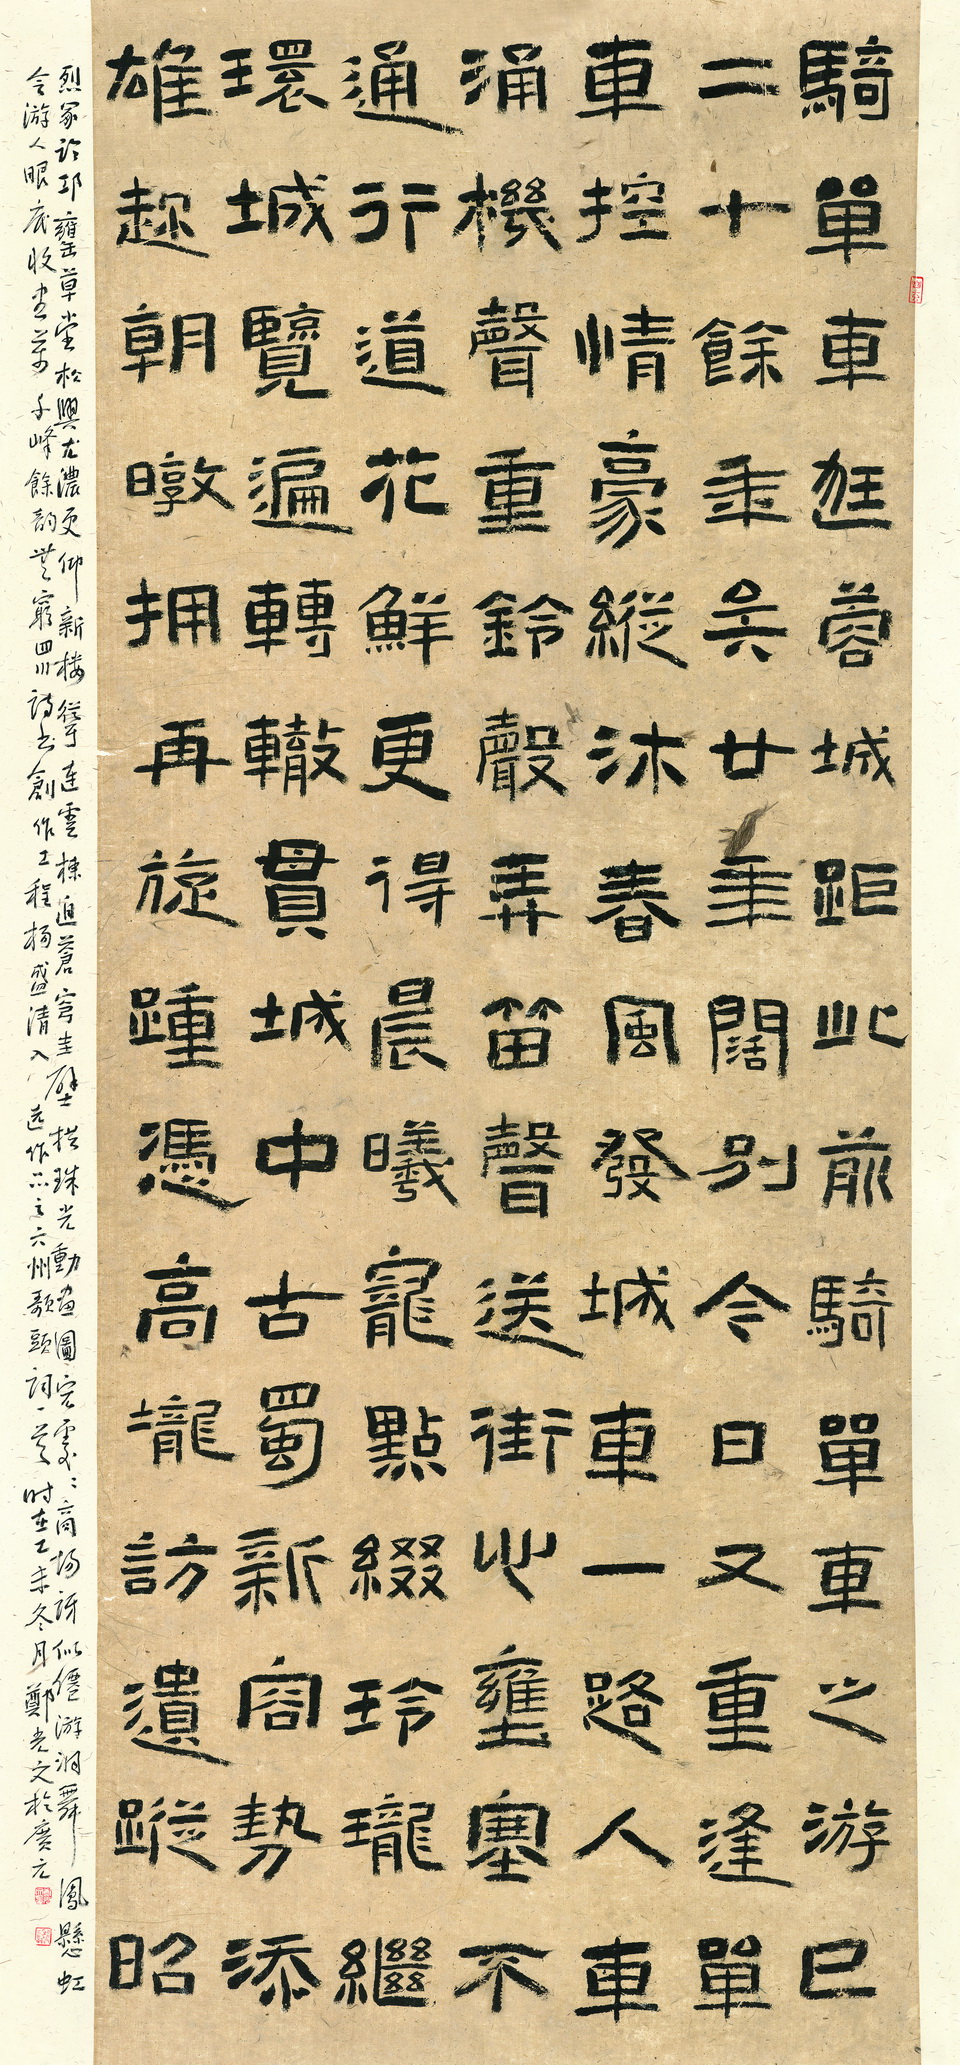 騎單車逛蓉城距此前騎單車之游已
二十餘年矣廿年闊別今日又重逢單
車控情豪縱沐春風發城車一路人車
涌機聲重鈴聲弄笛聲送街心壅塞不
通行道花鮮更得晨曦寵點綴玲瓏繼
環城覽遍轉轍貫城中古蜀新容勢添
雄趂朝暾拥再旋踵憑高壠訪遺蹤昭
烈冢詣邛 草堂松興尤濃更仰新樓聳連雲棟逼蒼穹圭壁拱珠光動畫圖 處處商場訝似僊游洞舞鳳懸虹
令游人眼底收 萬千峰餘韵無窮四川詩書創作工程楊盛清入選作品之六州歌頭詞一首時在乙未冬月鄭光文於廣元